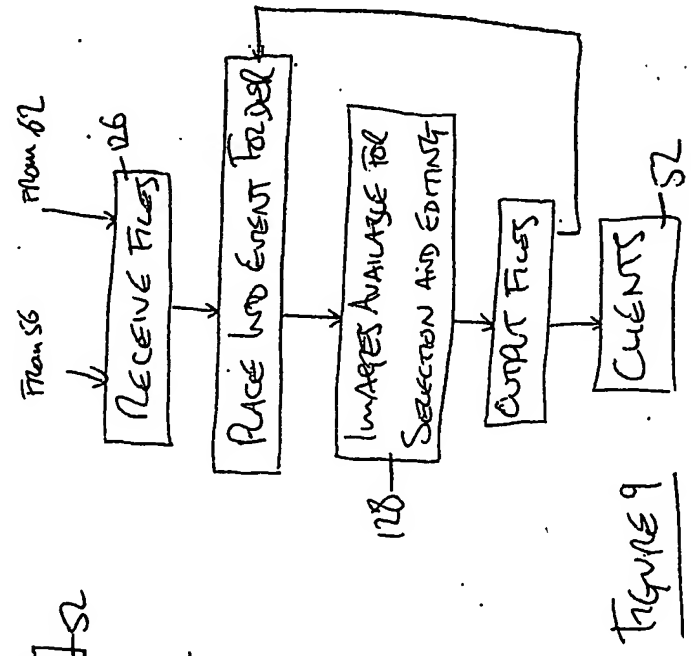 From 56
From 62
RECEIVE FILES
126
PLACE INTO EVENT FOLDER
IMAGES AVAILABLE FOR
SELECTION AND EDITING
128
OUTPUT FILES
CLIENTS
52
52
FIGURE 9